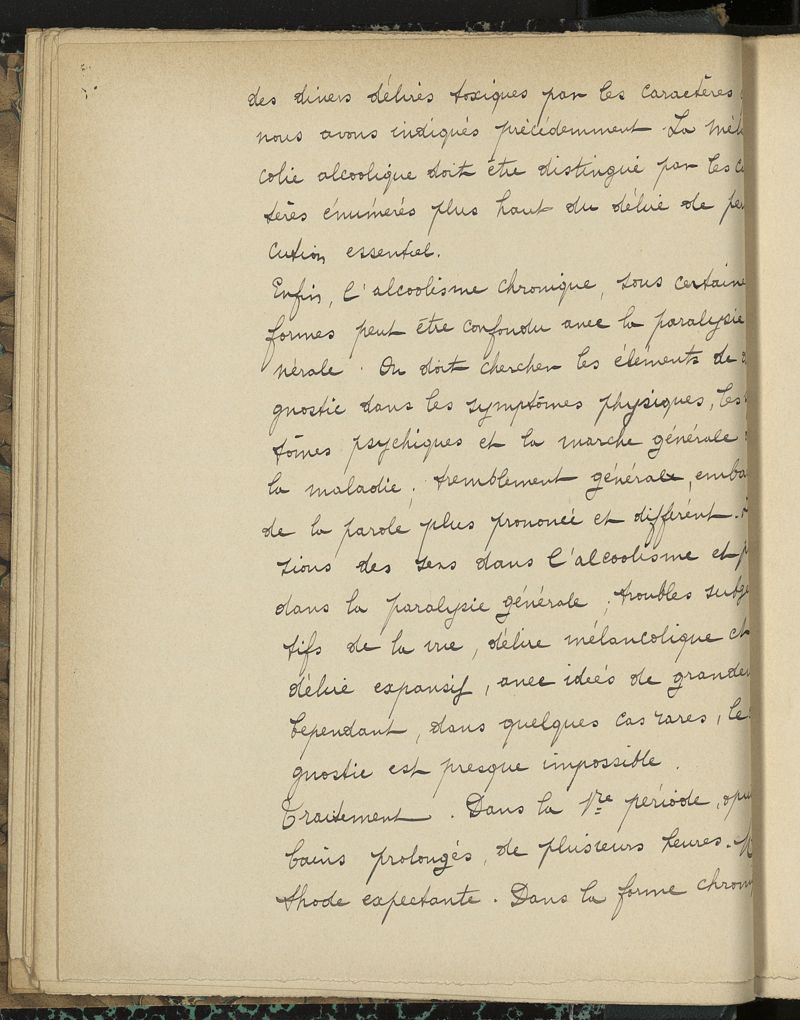 des divers délires toxiques par les caractères
nous avons indiqués précédemment. La mél
colie alcoolique doit être distingué par les ca
tères énumerés plus haut du délire de per
cution essentiel.
Enfin, l'alcoolisme chronique, sous certaine
formes peut être confondu avec la paralysie
nérale. On doit chercher les éléments de
gnostic dans les symptômes physiques, les
tômes psychiques et la marche générale
la maladie; tremblement générale, emba
de la parole plus prononcé et différent.
sions des sens dans l'alcoolisme et
dans la paralysie générale; troubles subje
tifs de la vue, délire mélancolique et
délire expansif, avec ideés de grandeu
Cependant, dans quelques cas rares, le
gnostic est presque impossible.
Traitement. Dans la 1re période, opi
bains prolongés, de plusieurs heures. M
thode expectante. Dans la forme chroni